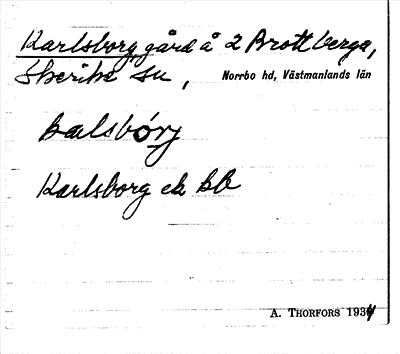 Karlsborg, gård å 2 Brottberga,
Skerike sn, Norrbo hd, Västmanlands län
kalsbórj
Karlsborg ek bb
A. THORFORS 1934